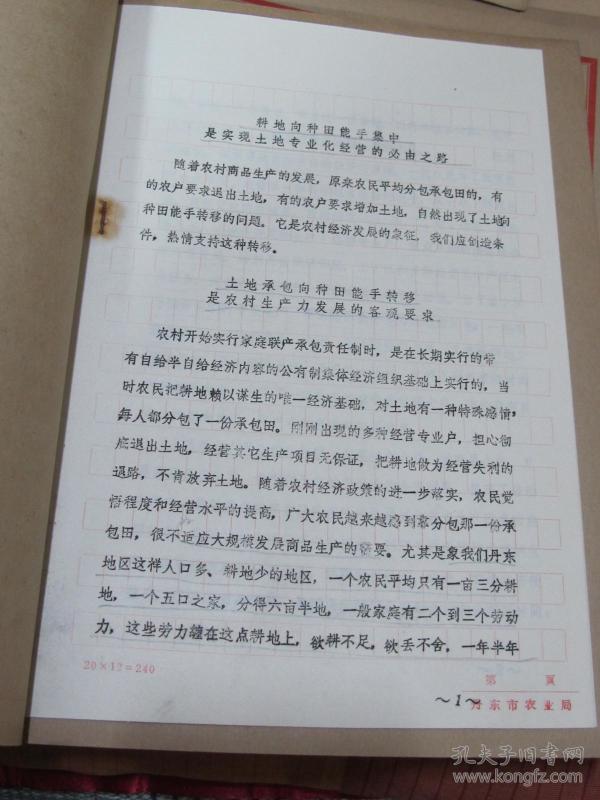 耕地向种田能手集中
是实现土地专业化经营的必由之路
随着农村商品生产的发展，原来农民平均分包承包田的，有
的农户要求退出土地，有的农户要求增加土地，自然出现了土地向
种田能手转移的问题。它是农村经济发展的象征，我们应创造条
件，热情支持这种转移。
土地承包向种田能手转移
是农村生产力发展的客观要求
农村开始实行家庭联产承包责任制时，是在长期实行的带
有自给半自给经济内容的公有制集体经济组织基础上实行的，当
时农民把耕地赖以谋生的唯一经济基础，对土地有一种特殊感情，
每人都分包了一份承包田。刚刚出现的多种经营专业户，担心彻
底退出土地，经营其它生产项目无保证，把耕地做为经营失利的
退路，不肯放弃土地。随着农村经济政策的进一步落实，农民觉
悟程度和经营水平的提高，广大农民越来越感到靠分包那一份承
包田，很不适应大规模发展商品生产的需要。尤其是象我们丹东
地区这样人口多、耕地少的地区，一个农民平均只有一亩三分耕
地，一个五口之家，分得六亩半地，一般家庭有二个到三个劳动
力，这些劳力缠在这点耕地上，欲耕不足，欲丢不舍，一年半年
20×12=240
第 页
～1～
丹东市农业局
孔夫子旧书网
www.kongfz.com